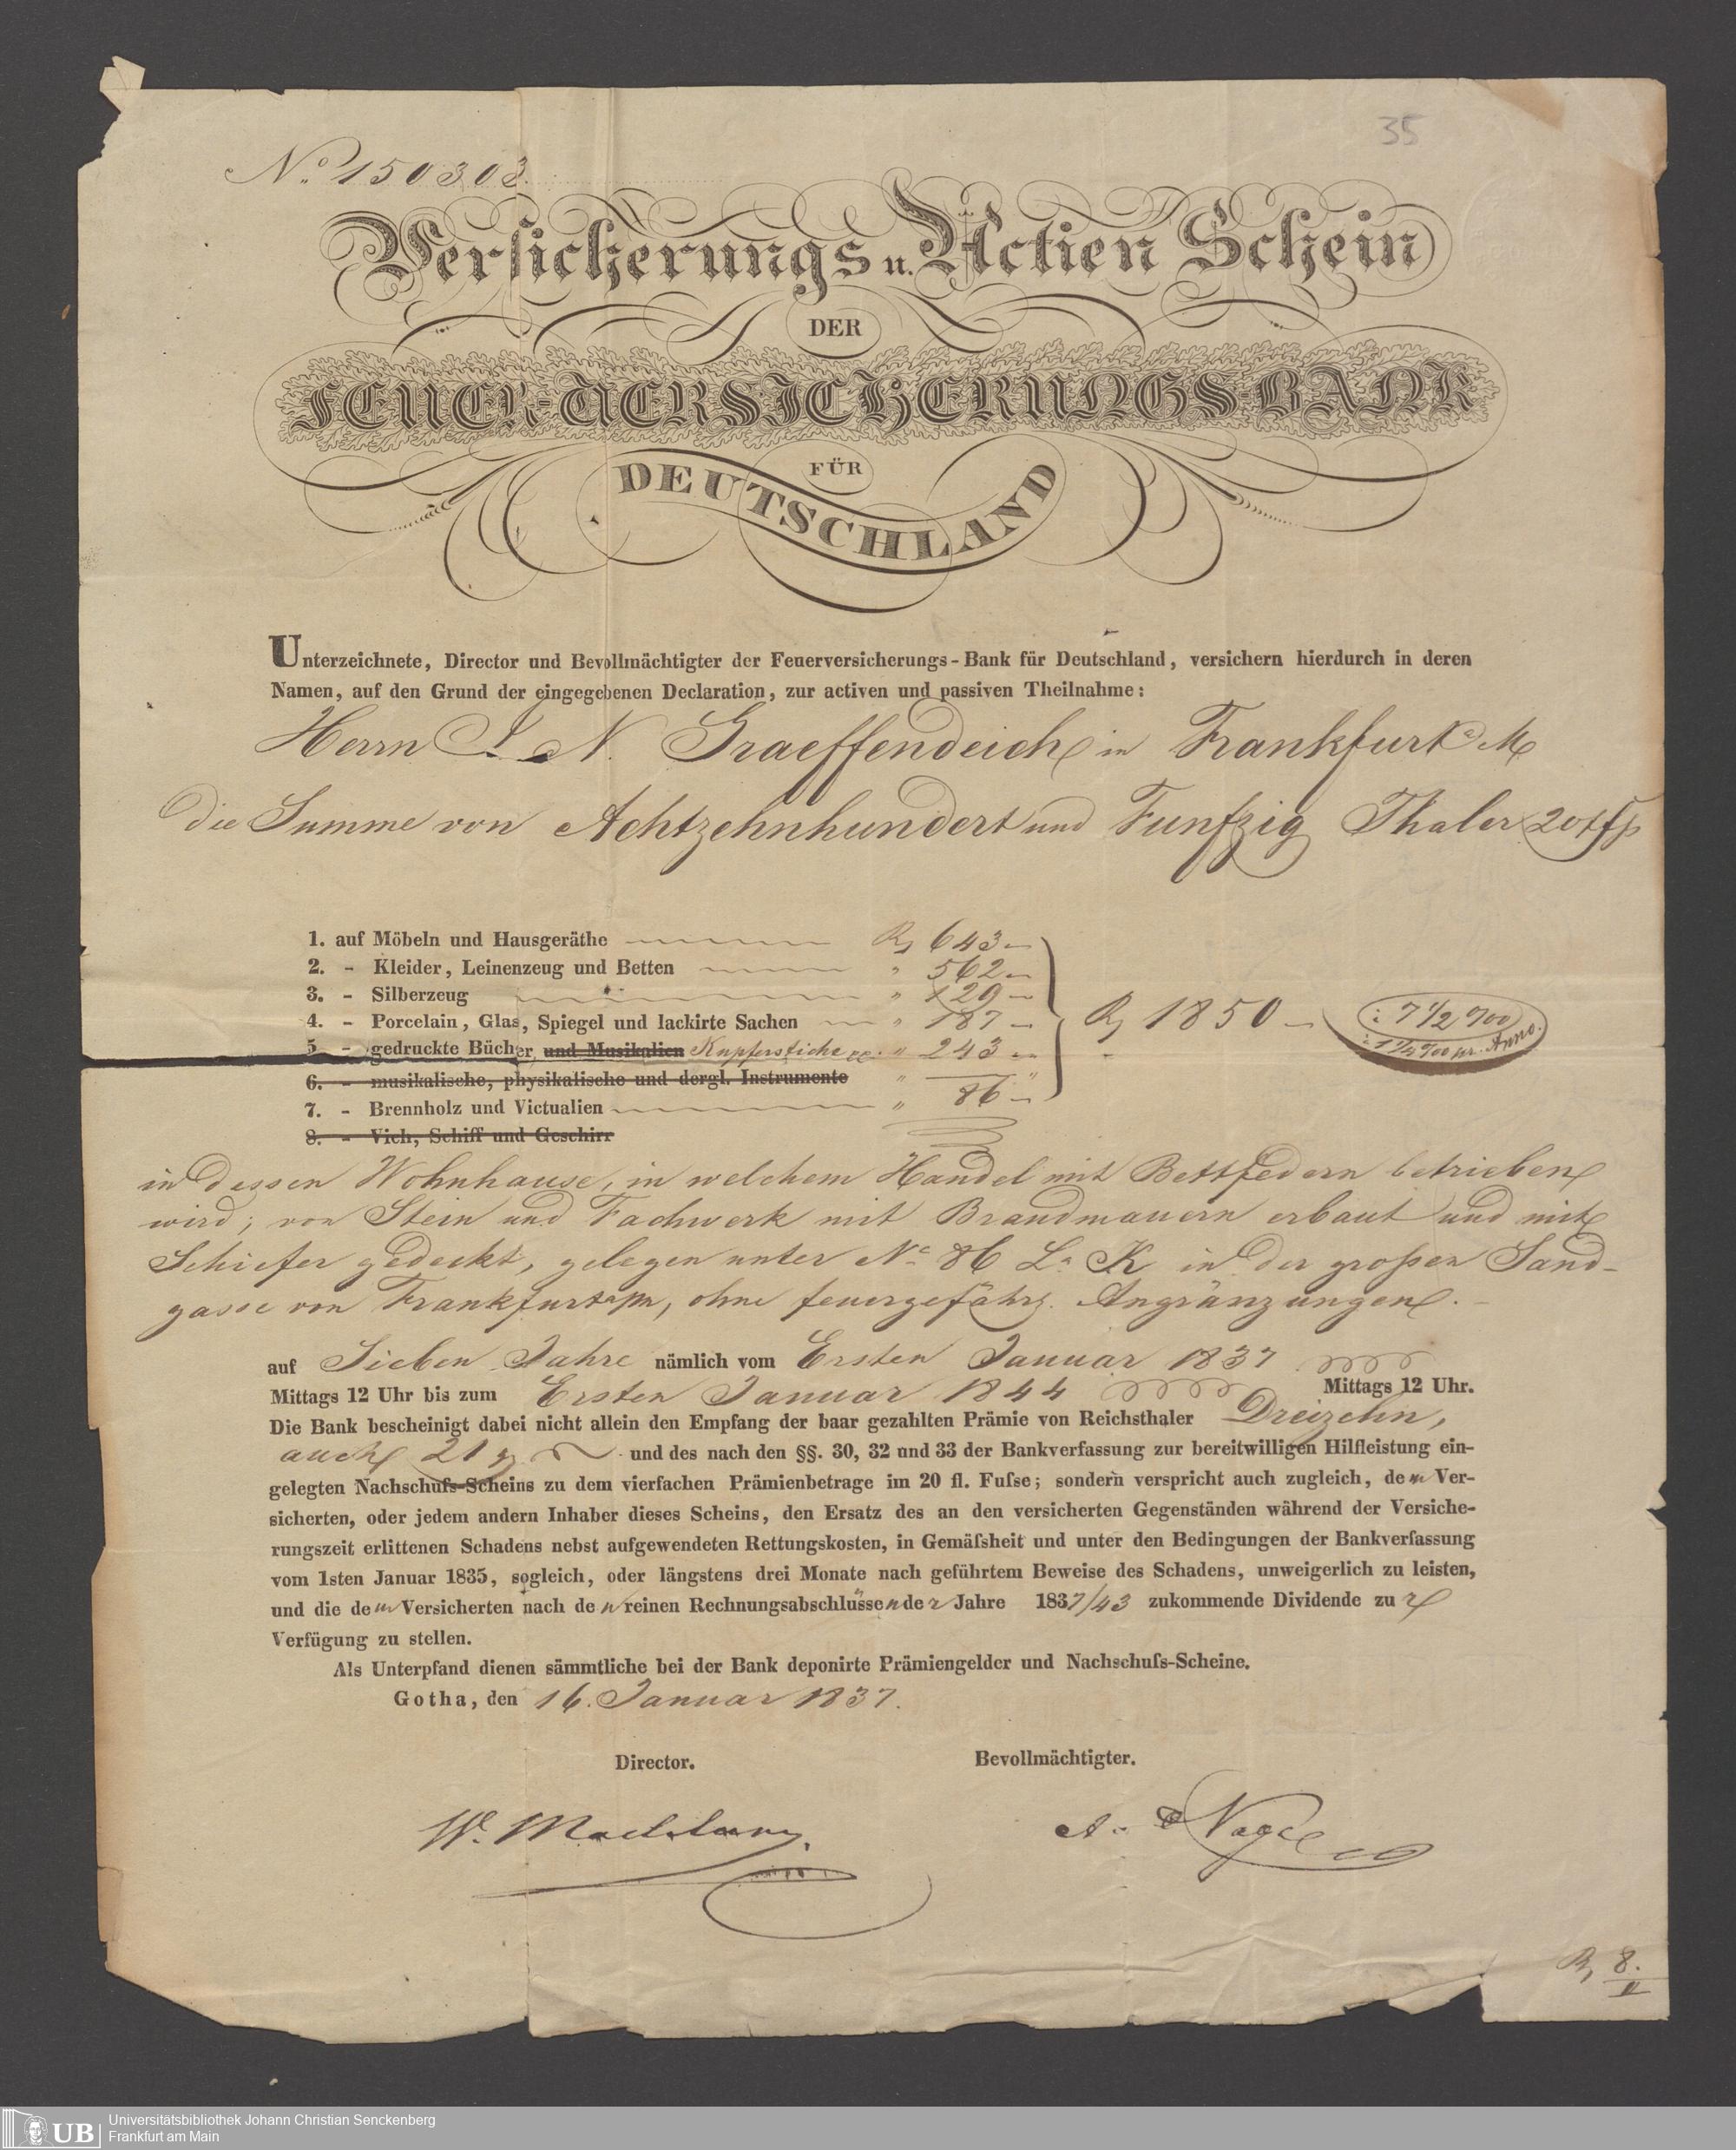 35
No. 150303.
Versicherungs u. Actien Schein
DER
FEUER-VERSICHERUNGS-BANK
FÜR
DEUTSCHLAND
Unterzeichnete, Director und Bevollmächtigter der Feuerversicherungs-Bank für Deutschland, versichern hierdurch in deren
Namen, auf den Grund der eingegebenen Declaration, zur activen und passiven Theilnahme:
Herrn J. N. Graeffendeich in Frankfurt a M
die Summe von Achtzehnhundert und Funfzig Thaler
1. auf Möbeln und Hausgeräthe 643
2. - Kleider, Leinenzeug und Betten " 562
3. - Silberzeug " 129
4. - Porcelain, Glas, Spiegel und lackirte Sachen " 187
5. - gedruckte Bücher, und Musikalien Kupferstiche " 243
1850 - 7 1/2 %00
1 1/2 %00 pr. Anno.
6. - musikalische, physikalische und dergl. Instrumente "
7. - Brennholz und Victualien " 86
8. - Vieh, Schiff und Geschirr
in dessen Wohnhause, in welchem Handel mit Bettfedern betrieben
wird; von Stein und Fachwerk mit Brandmauern erbaut und mit
Schiefer gedeckt, gelegen unter No 86 La K in der großen Sand-
gasse von Frankfurt a/m, ohne feuergefährl. Angränzungen.
auf Sieben Jahre nämlich vom Ersten Januar 1837
Mittags 12 Uhr bis zum Ersten Januar 1844 Mittags 12 Uhr.
Die Bank bescheinigt dabei nicht allein den Empfang der baar gezahlten Prämie von Reichsthaler Dreizehn,
auch 21 und des nach den §§. 30, 32 und 33 der Bankverfassung zur bereitwilligen Hilfleistung ein-
gelegten Nachschuſs-Scheins zu dem vierfachen Prämienbetrage im 20 fl. Fuſse; sondern verspricht auch zugleich, dem Ver-
sicherten, oder jedem andern Inhaber dieses Scheins, den Ersatz des an den versicherten Gegenständen während der Versiche-
rungszeit erlittenen Schadens nebst aufgewendeten Rettungskosten, in Gemäſsheit und unter den Bedingungen der Bankverfassung
vom 1sten Januar 1835, sogleich, oder längstens drei Monate nach geführtem Beweise des Schadens, unweigerlich zu leisten,
und die dem Versicherten nach den reinen Rechnungsabschlüssen der Jahre 1837/43 zukommende Dividende zu r
Verfügung zu stellen.
Als Unterpfand dienen sämmtliche bei der Bank deponirte Prämiengelder und Nachschuſs-Scheine.
Gotha, den 16. Januar 1837.
Director. Bevollmächtigter.
A. Nagel
8.
UB
Universitätsbibliothek Johann Christian Senckenberg
Frankfurt am Main